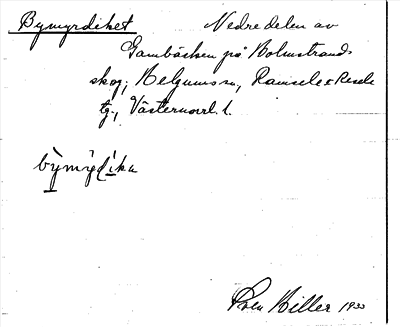 Bymyrdiket Nedre delen av
Gambäcken på Holmstrands
skog, Helgums sn, Ramsele o Resele
tg., Västernorrl. l.
bymyḍika
Sven Hiller 1933